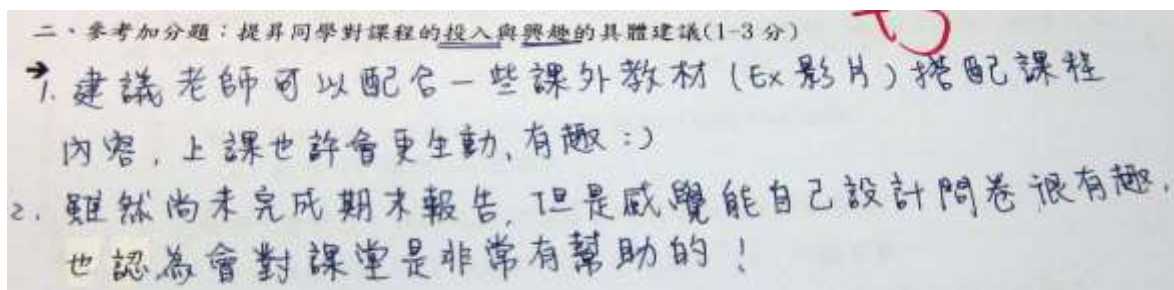 二、參考加分題：提昇同學對課程的投入與興趣的具體建議(1-3 分)
+3
→1. 建議老師可以配合一些課外教材 (Ex 影片) 搭配課程
內容, 上課也許會更生動、有趣 :)
2. 雖然尚未完成期末報告, 但是感覺能自己設計問卷很有趣,
也認為會對課堂是非常有幫助的！